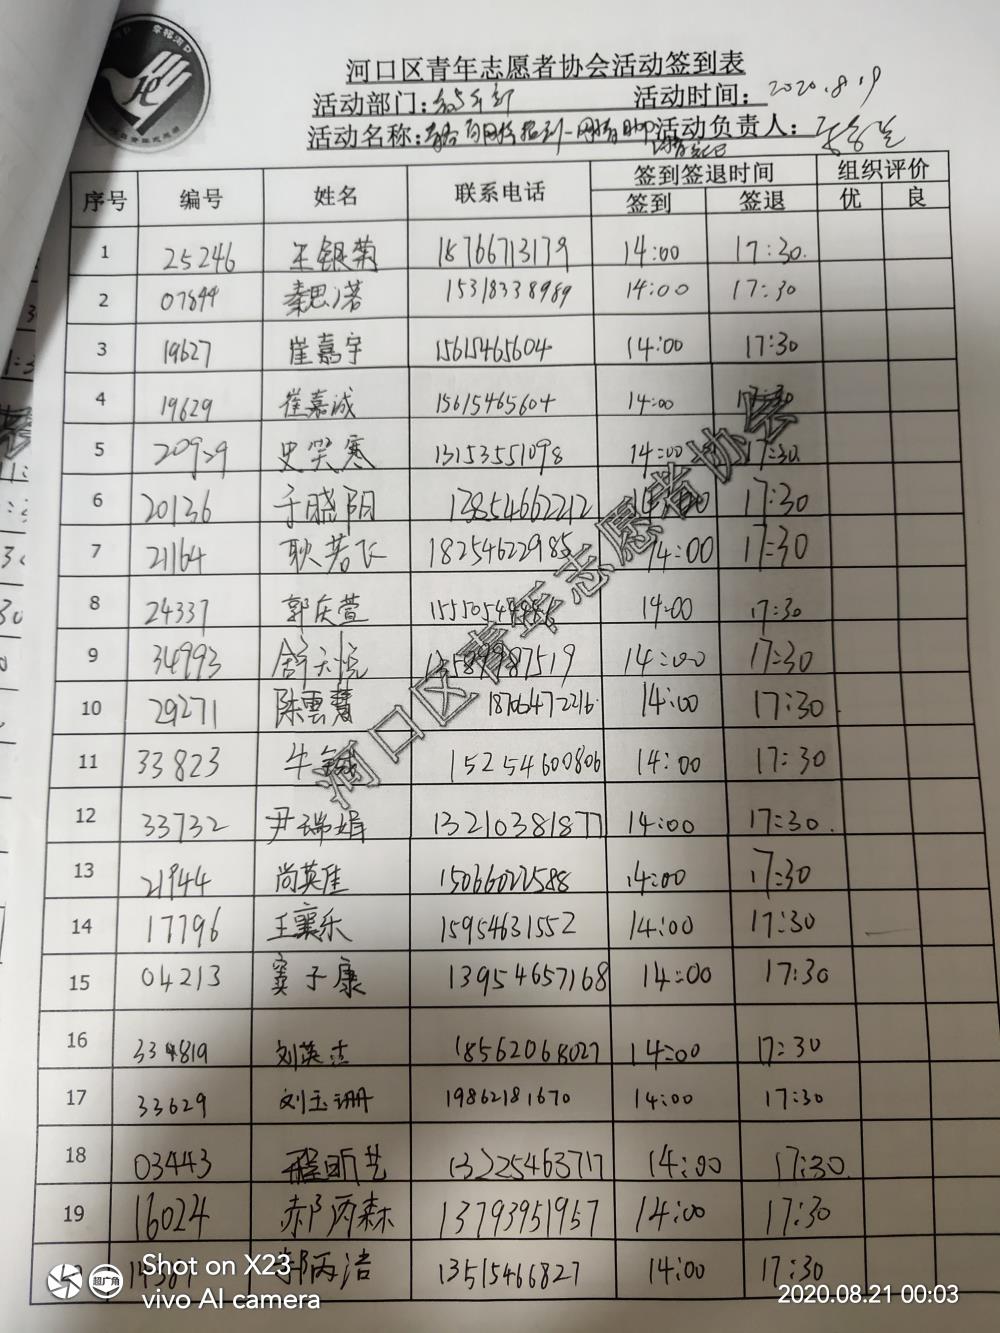 河口区青年志愿者协会活动签到表
活动部门: 活动时间: 2020.8.19
活动名称: 活动负责人:
序号 编号 姓名 联系电话 签到签退时间 组织评价
签到 签退 优 良
1 25246 王银菊 18766713179 14:00 17:30.
2 07844 秦思诺 15318338989 14:00 17:30
3 19627 崔嘉宇 15615465604 14:00 17:30
4 19629 崔嘉诚 15615465604 14:00 17:30
5 史笑寒 13153551098 14:00 17:30.
6 20136 于晓阳 13854662212 14:00 17:30
7 21164 耿若飞 18254622985 14:00 17:30
8 24337 郭庆萱 14:00 17:30
9 34993 舒天悦 14:00 17:30
10 29271 陈雲慧 18706472216 14:00 17:30
11 33823 牛 15254600806 14:00 17:30
12 33732 尹瑞娟 13210381877 14:00 17:30.
13 21944 尚英佳 15066022588 14:00 17:30
14 17796 王襄乐 15954631552 14:00 17:30
15 04213 窦子康 13954657168 14:00 17:30
16 334819 刘英杰 18562068027 14:00 17:30
17 33629 刘玉珊 19862181670 14:00 17:30
18 03443 程昕艺 13225463717 14:00 17:30.
19 16024 郝丙森 13793951957 14:00 17:30
丙洁 13515466827 14:00 17:30
河口区青年志愿者协会
超广角
Shot on X23
vivo AI camera
2020.08.21 00:03